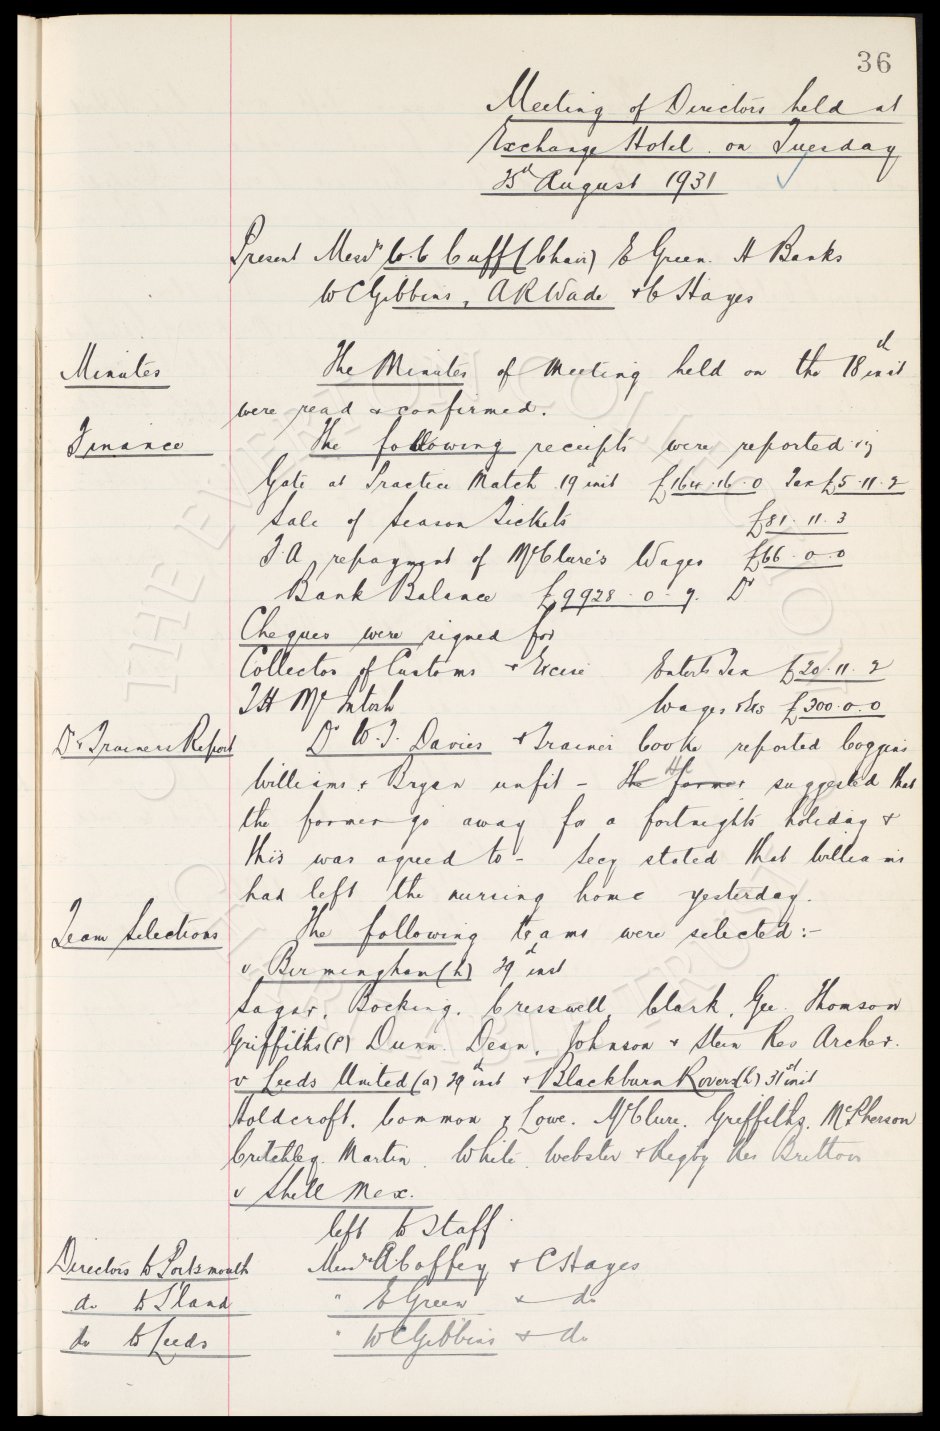 36
Meeting of Directors held at
Exchange Hotel on Tuesday
25th August 1931
Present Messrs W.C. Cuff (Chair) E Green. H Banks
W C Gibbins, A R Wade & C S Hayes
Minutes The Minutes of Meeting held on the 18th inst
were read & confirmed.
Finance The following receipts were reported
Gate at Practice Match 19th inst £164.16.0 Tax £5.11.2
Sale of Season Tickets £81.11.3
F.A. repayment of McClure's Wages £66.0.0
Bank Balance £9928.0.9. Dr
Cheques were signed for
Collector of Customs & Excise Enterts Tax £20.11.2
T H McIntosh Wages &c £300.0.0
Dr & Trainers Report Dr W.F. Davies & Trainer Cooke reported Coggins
Williams & Bryan unfit - The former He suggested that
the former go away for a fortnight's holiday &
this was agreed to - Secy stated that Williams
had left the nursing home yesterday.
Team Selections The following teams were selected:-
v Birmingham (h) 29th inst
Sagar, Bocking, Cresswell, Clark, Gee Thomson
Griffiths (P) Dunn. Dean, Johnson & Stein Res Archer.
v Leeds United (a) 29th inst & Blackburn Rovers (h) 31st inst
Holdcroft, Common & Lowe. McClure, Griffiths, McPherson
Critchley. Martin. White. Webster & Rigby Res Britton
v Shell Mex.
left to Staff.
Directors to Portsmouth Messrs A Coffey & C S Hayes
do to S'land " E Green & do
do to Leeds " W C Gibbins & do
THE EVERTON COLLECTION
CHARITABLE TRUST